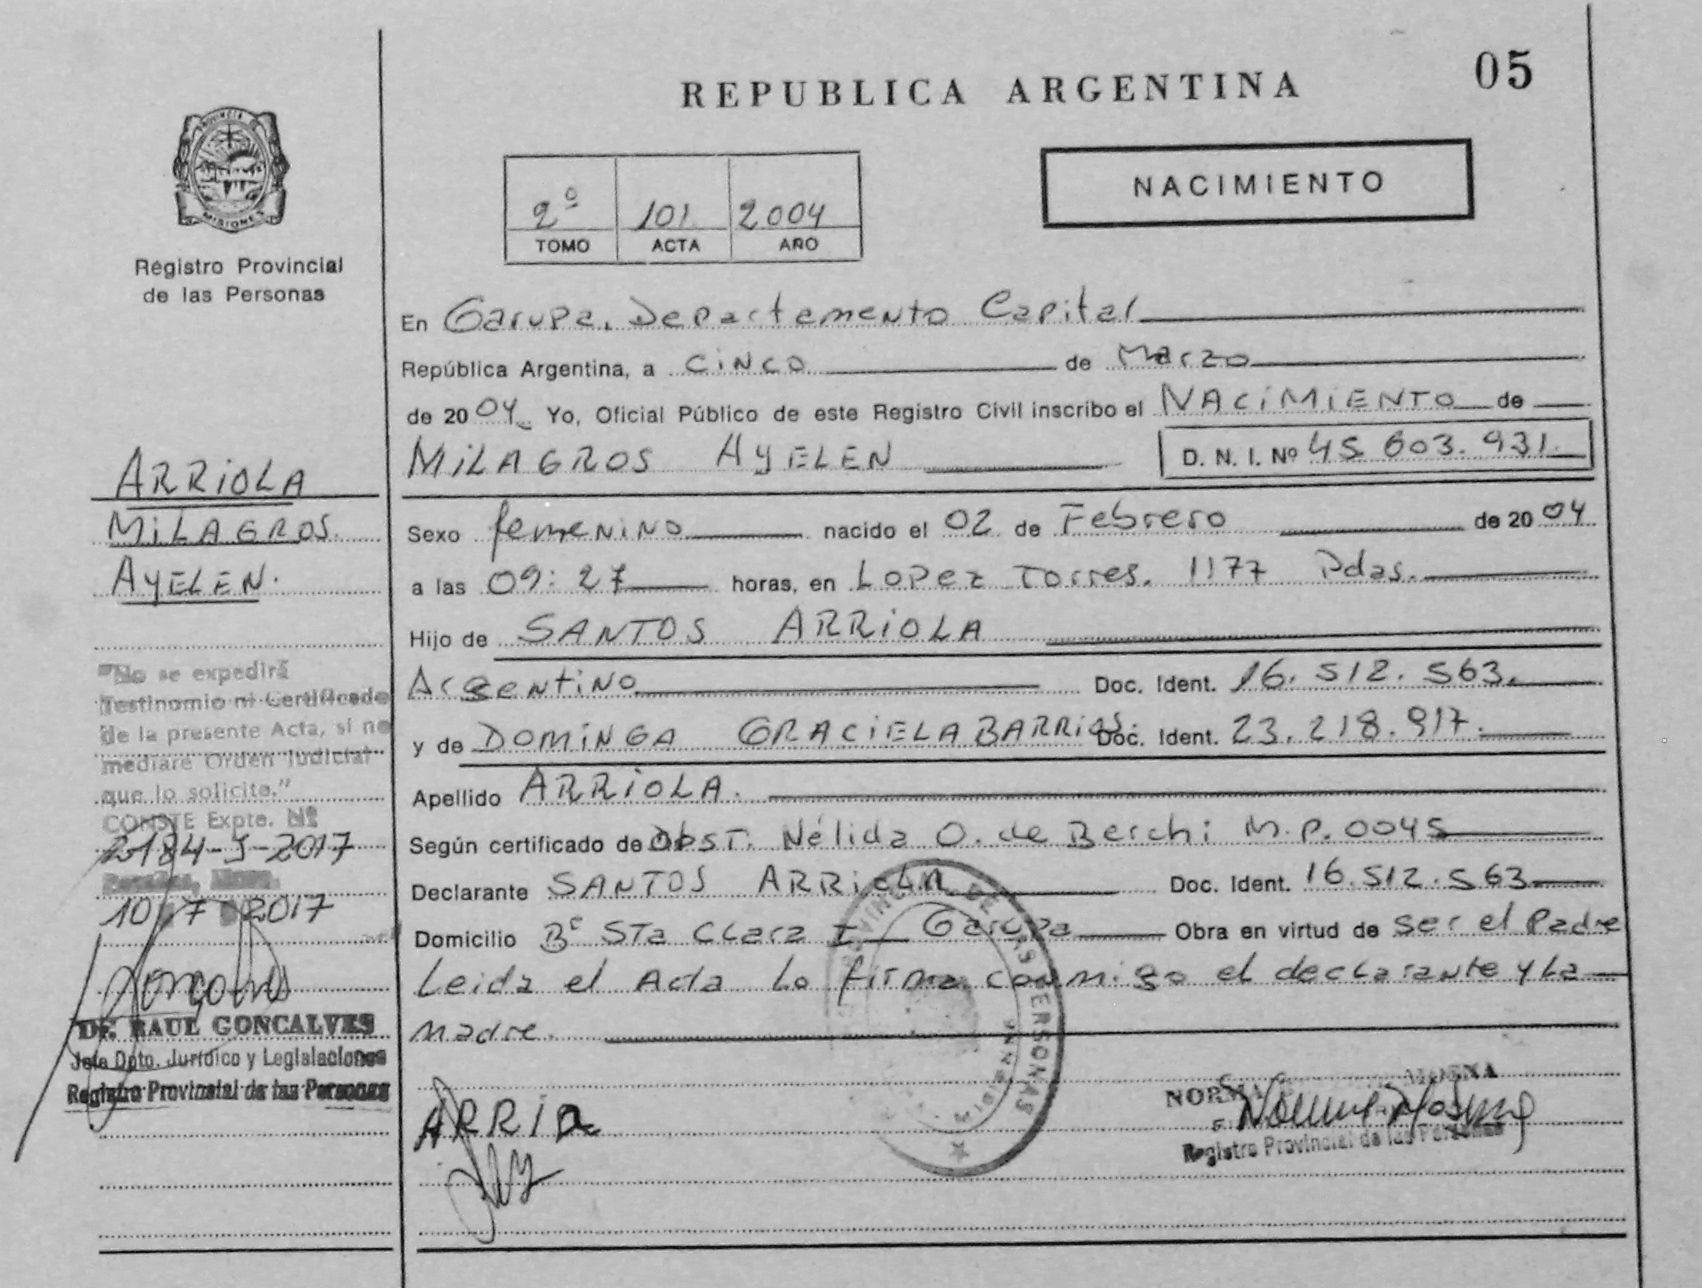 REPUBLICA ARGENTINA
05
PROVINCIA DE
MISIONES
Registro Provincial
de las Personas
2º 101 2004
TOMO ACTA AÑO
NACIMIENTO
En Garupa. Departamento Capital
República Argentina, a CINCO de Marzo
de 2004 Yo, Oficial Público de este Registro Civil inscribo el NACIMIENTO de
MILAGROS AYELEN D. N. I. Nº 45.603.931.
Sexo femenino nacido el 02 de Febrero de 2004
a las 09:27 horas, en Lopez Torres. 1177 Pdas.
Hijo de SANTOS ARRIOLA
Argentino Doc. Ident. 16.512.563.
y de DOMINGA GRACIELA BARRIOS. Doc. Ident. 23.218.917.
Apellido ARRIOLA.
Según certificado de Obst. Nélida O. de Berchi M.P.0045
Declarante SANTOS ARRIOLA Doc. Ident. 16.512.563
Domicilio Bº Sta Clara I Garupa Obra en virtud de ser el Padre
Leida el Acta la firma conmigo el declarante y la
madre.
ARRIOLA
MILAGROS
AYELEN.
"No se expedirá
Testimonio ni Certificado
de la presente Acta, si no
mediare Orden Judicial
que lo solicite."
CONSTE Expte. Nº
2184-J-2017
10 7 2017
DR. RAUL GONCALVES
Jefe Dpto. Jurídico y Legislaciones
Registro Provincial de las Personas
PROVINCIAL DE LAS PERSONAS
MISIONES
ARRIO
NORMA
Registro Provincial de las Personas